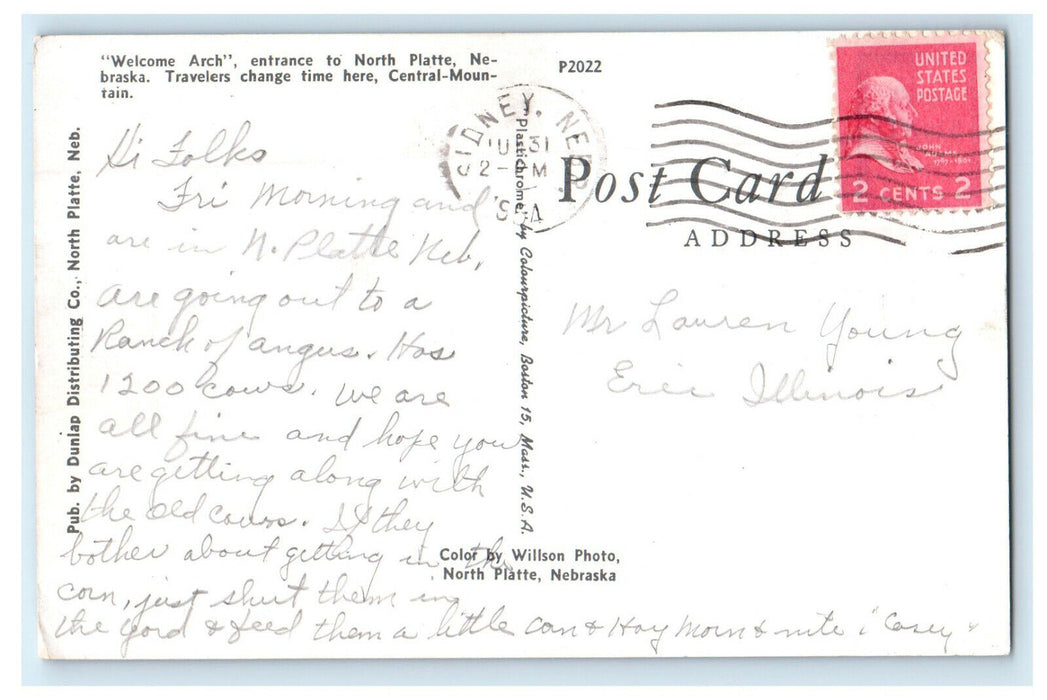 "Welcome Arch", entrance to North Platte, Ne-
braska. Travelers change time here, Central-Moun-
tain.
P2022
SIDNEY, NEB
31
2- M
UNITED
STATES
POSTAGE
JOHN
ADAMS
2 CENTS 2
Post Card
ADDRESS
Pub. by Dunlap Distributing Co., North Platte, Neb.
Plastichrome, by Colourpicture, Boston 15, Mass., U.S.A.
Hi Folks
Fri Morning and
are in N. Platte Neb.
are going out to a
Ranch of angus. Has
1200 cows. We are
all fine and hope you
are getting along with
the old cows. If they
bother about getting in the
corn, just shut them in
the yard & feed them a little corn & Hay Morn & nite "Casey"
Mr Lauren Young
Erie Illinois
Color by Willson Photo,
North Platte, Nebraska